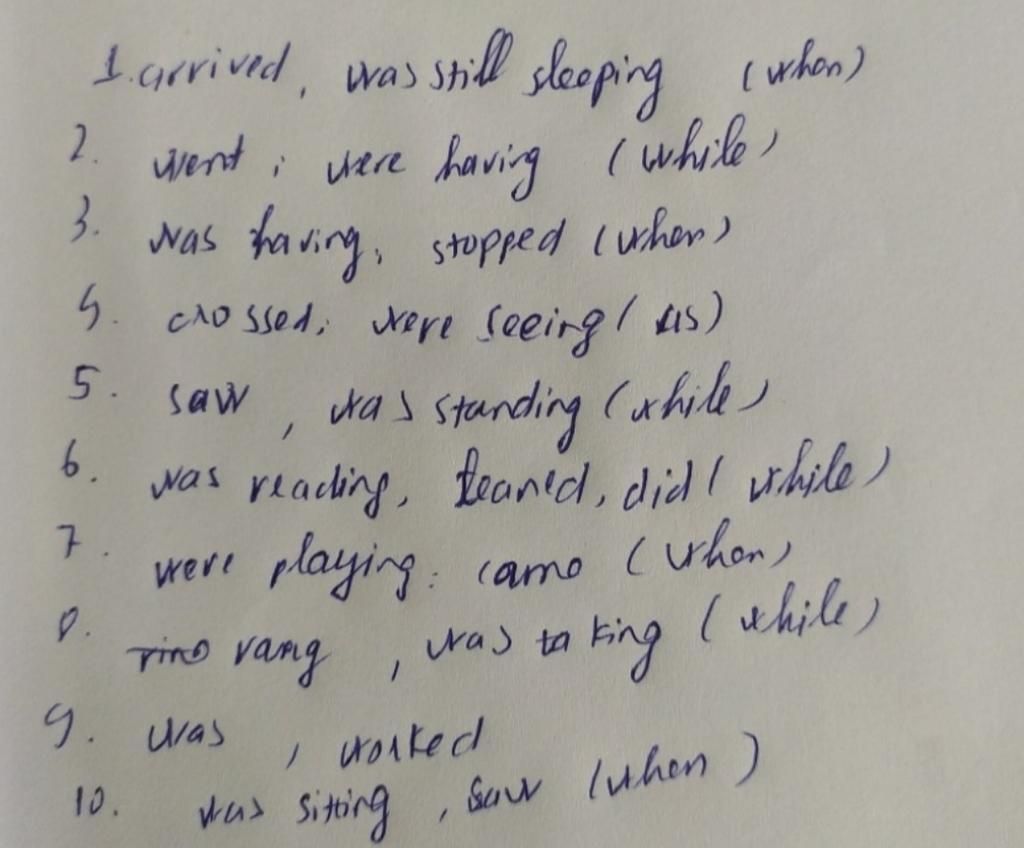 1. arrived, was still sleeping (when)
2. went, were having (while)
3. was having, stopped (when)
4. crossed, were seeing (as)
5. saw, was standing (while)
6. was reading, leaned, did (while)
7. were playing, came (when)
8. rang, was taking (while)
9. was, worked
10. was sitting, saw (when)